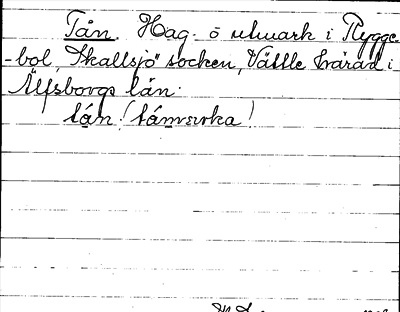 Tån. Hag- o utmark i Rygge-
-bol, Skallsjö socken, Vättle härad i
Älfsborgs län.
tån!